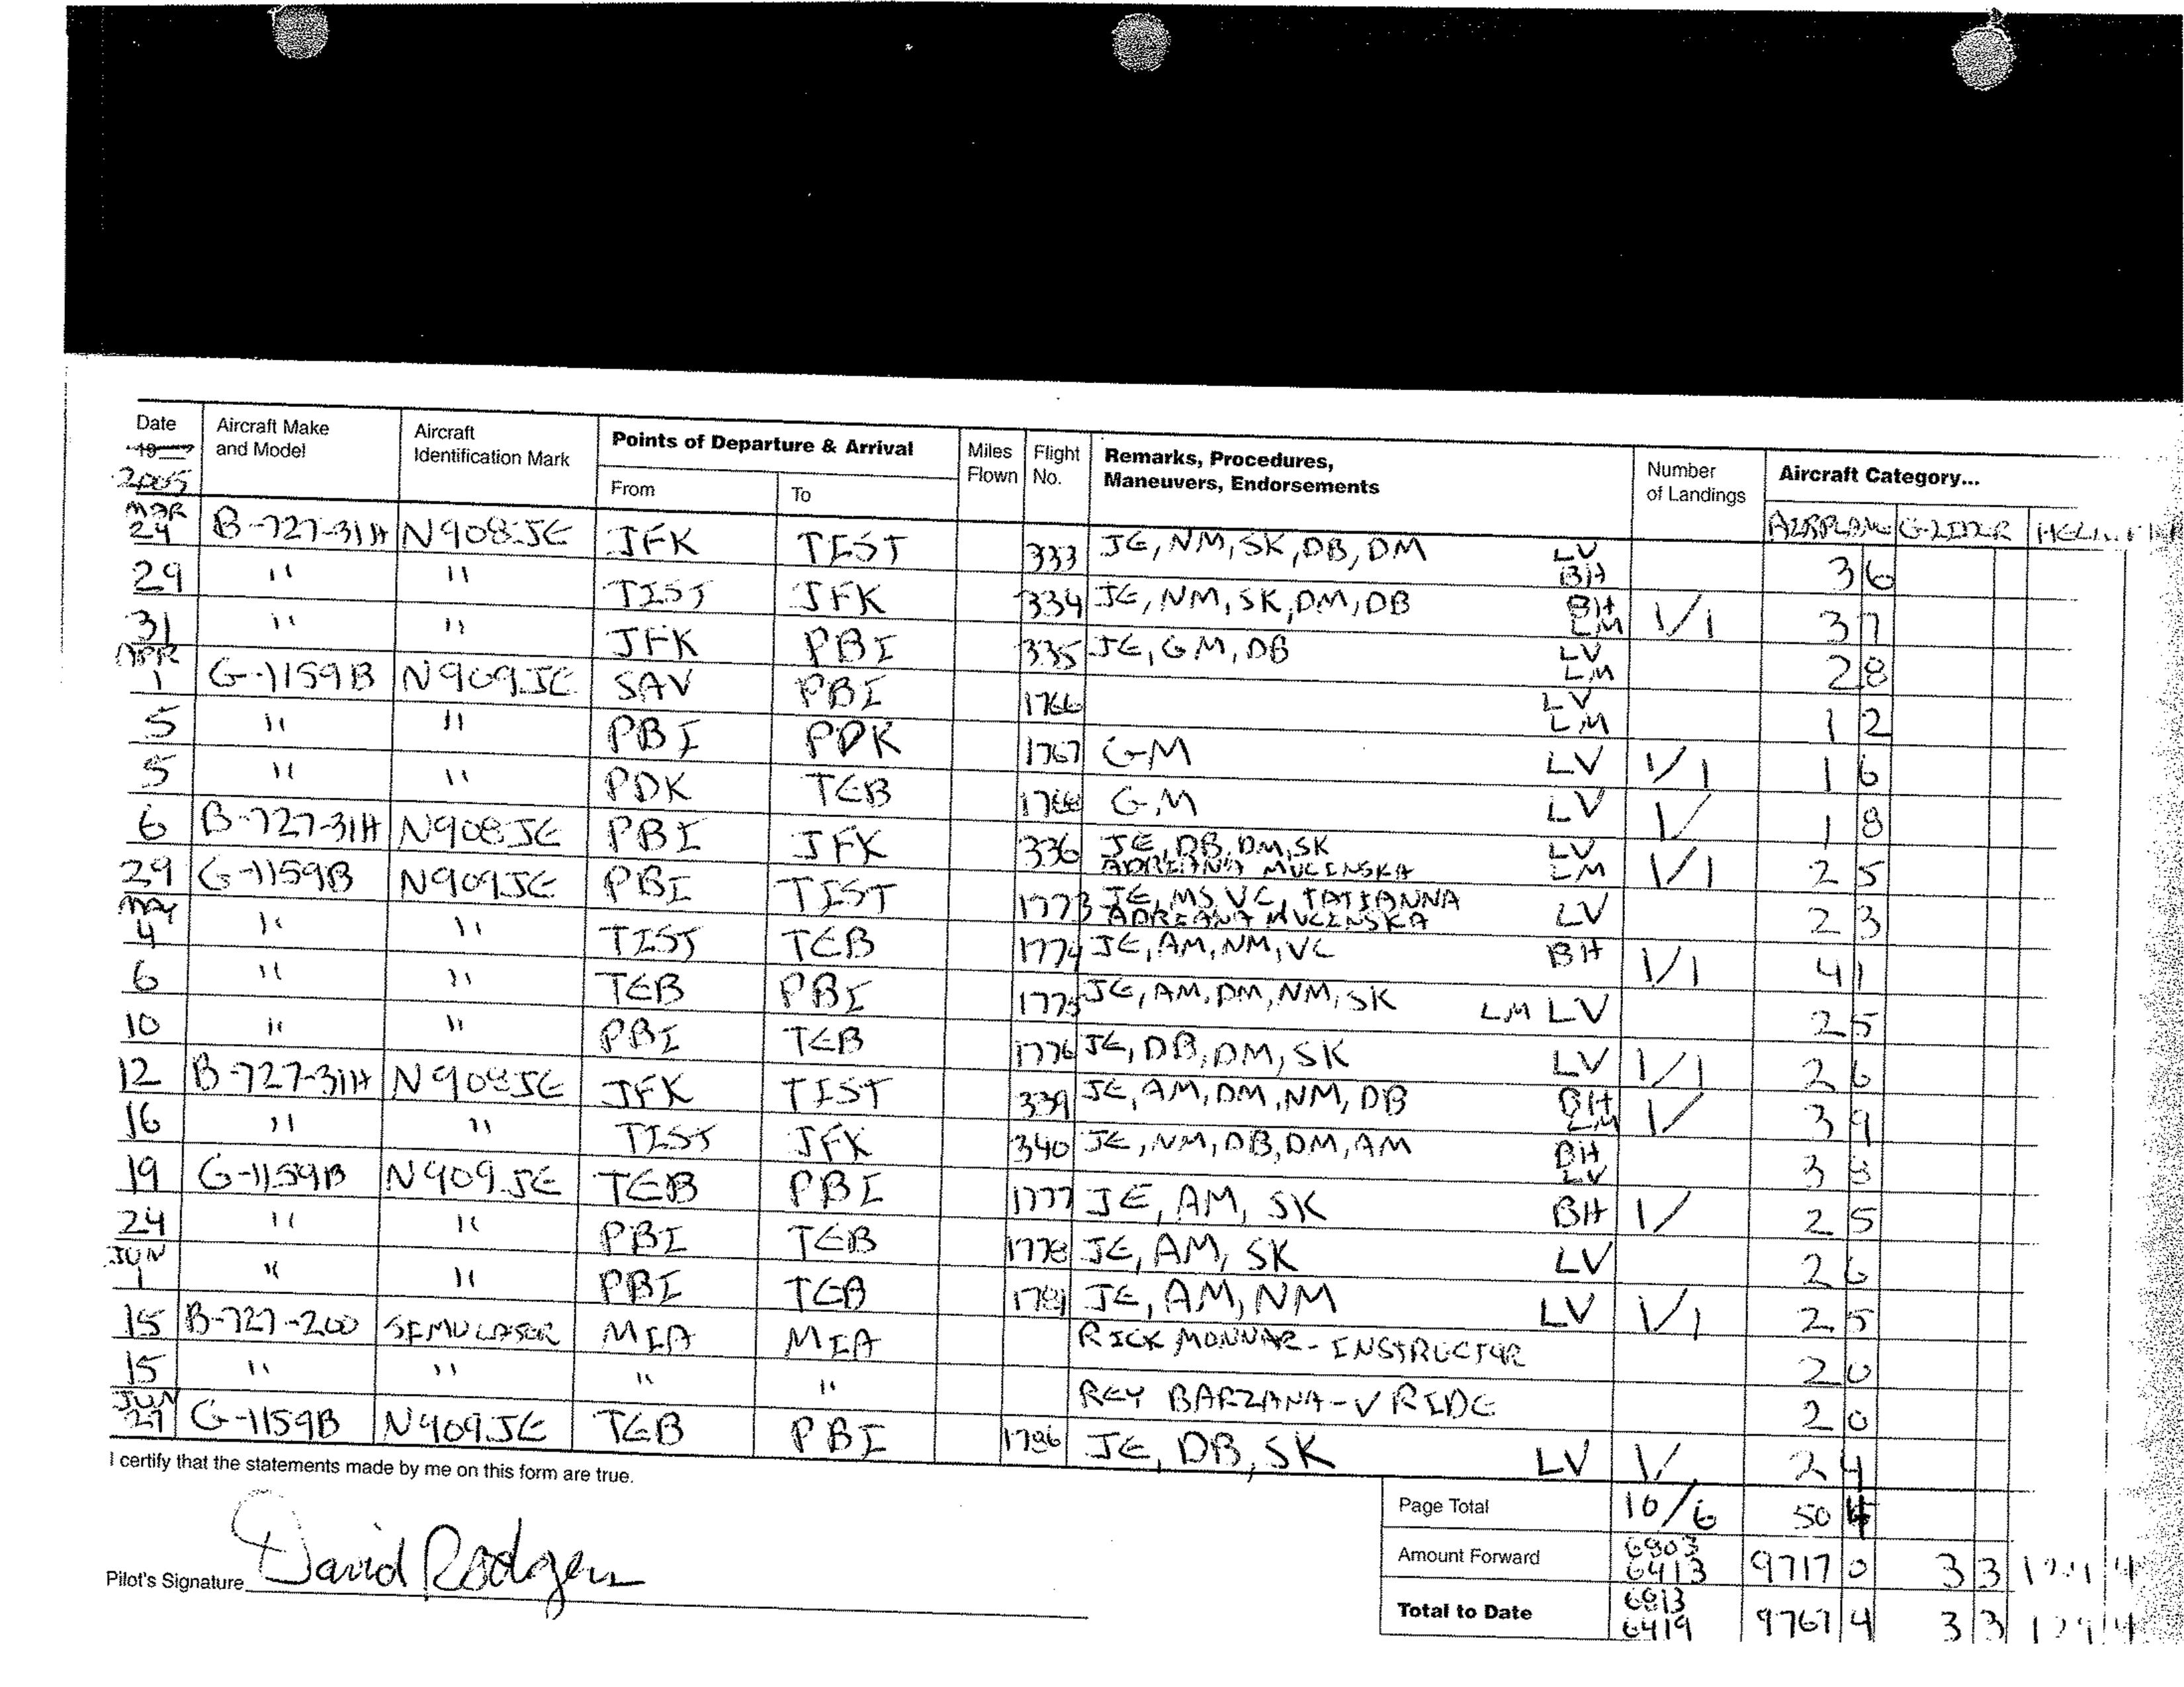 Date Aircraft Make and Model Aircraft Identification Mark Points of Departure & Arrival Miles Flown Flight No. Remarks, Procedures, Maneuvers, Endorsements Number of Landings Aircraft Category...
19 2005 From To AIRPLANE GLIDER
MAR 24 B-727-31H N908JE JFK TIST 333 JE, NM, SK, DB, DM LV BH 3 6
29 " " TIST JFK 334 JE, NM, SK, DM, DB BH LM 1/1 3 7
31 " " JFK PBI 335 JE, GM, DB LV LM 2 8
APR 1 G-1159B N909JE SAV PBI 1766 LV LM 1 2
5 " " PBI PDK 1767 GM LV 1/1 1 6
5 " " PDK TEB 1768 GM LV 1/ 1 8
6 B-727-31H N908JE PBI JFK 336 JE, DB, DM, SK ADRIANA MUCINSKA LV LM 1/1 2 5
29 G-1159B N909JE PBI TIST 1773 JE, MS VC, TATIANNA ADRIANA MUCINSKA LV 2 3
MAY 4 " " TIST TEB 1774 JE, AM, NM, VC BH 1/1 4 1
6 " " TEB PBI 1775 JE, AM, DM, NM, SK LM LV 2 5
10 " " PBI TEB 1776 JE, DB, DM, SK LV 1/1 2 6
12 B-727-31H N908JE JFK TIST 339 JE, AM, DM, NM, DB BH LM 1/ 3 9
16 " " TIST JFK 340 JE, NM, DB, DM, AM BH LV 3 8
19 G-1159B N909JE TEB PBI 1777 JE, AM, SK BH 1/ 2 5
24 " " PBI TEB 1778 JE, AM, SK LV 2 6
JUN 1 " " PBI TEB 1781 JE, AM, NM LV 1/1 2 5
15 B-727-200 SIMULATOR MIA MIA RICK MONNAR - INSTRUCTOR 2 0
15 " " " " REY BARZANA - V RIDE 2 0
JUN G-1159B N909JE TEB PBI 1786 JE, DB, SK LV 1/ 2 4
I certify that the statements made by me on this form are true.
Page Total 10/6 50 4
Amount Forward 6803 6413 9717 0 3 3
Pilot's Signature David Rodgers
Total to Date 6813 6419 9767 4 3 3